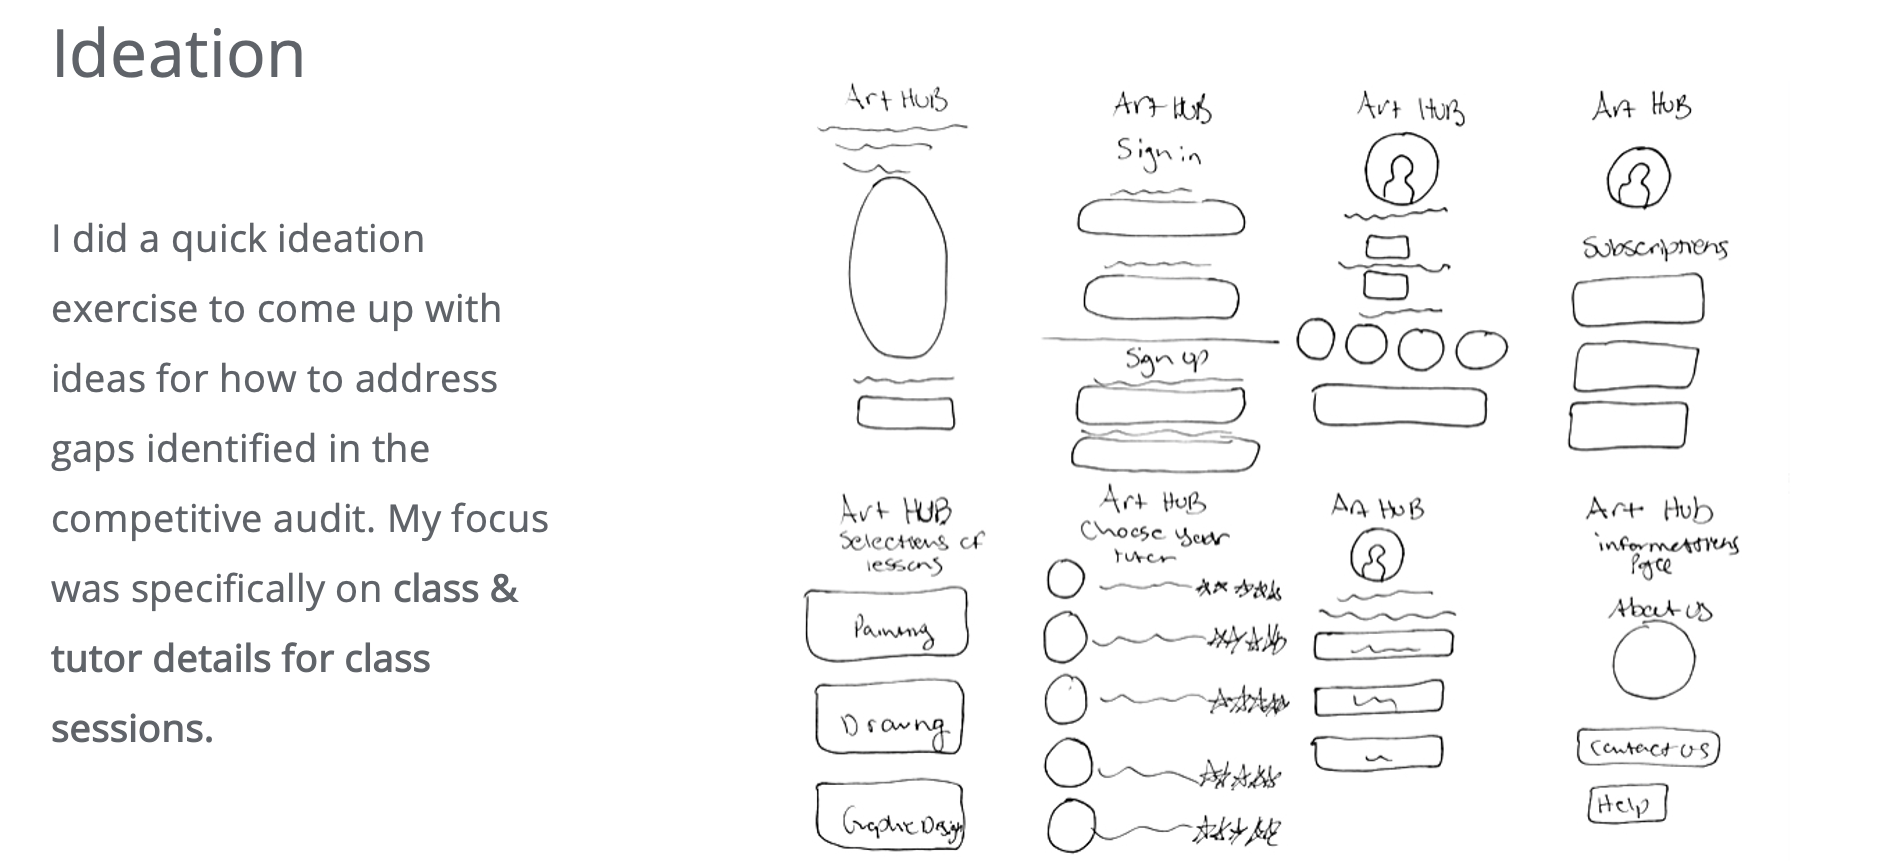 Ideation
I did a quick ideation
exercise to come up with
ideas for how to address
gaps identified in the
competitive audit. My focus
was specifically on class &
tutor details for class
sessions.
Art HUB
Art HUB
Sign in
Sign up
Art HUB
Art HUB
Subscriptions
Art HUB
Selections of
lessons
Painting
Drawing
Graphic Design
Art HUB
Choose your
tutor
Art HUB
Art Hub
informations
Page
About us
Contact us
Help